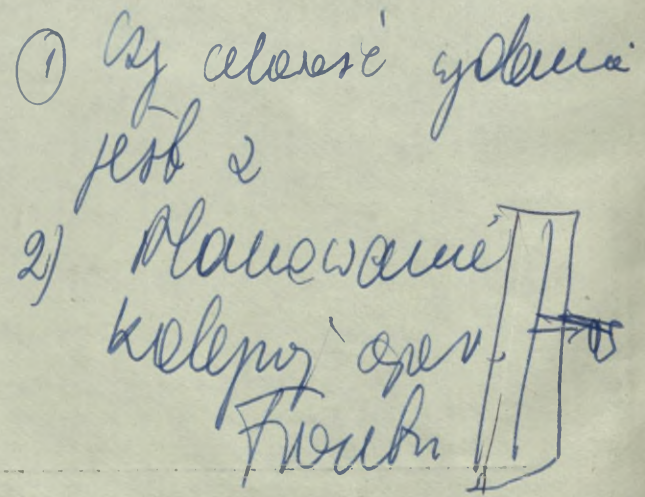 ① Czy celowość wydania
jest z
2) Planowanie
kolejnej oper.
Frontu